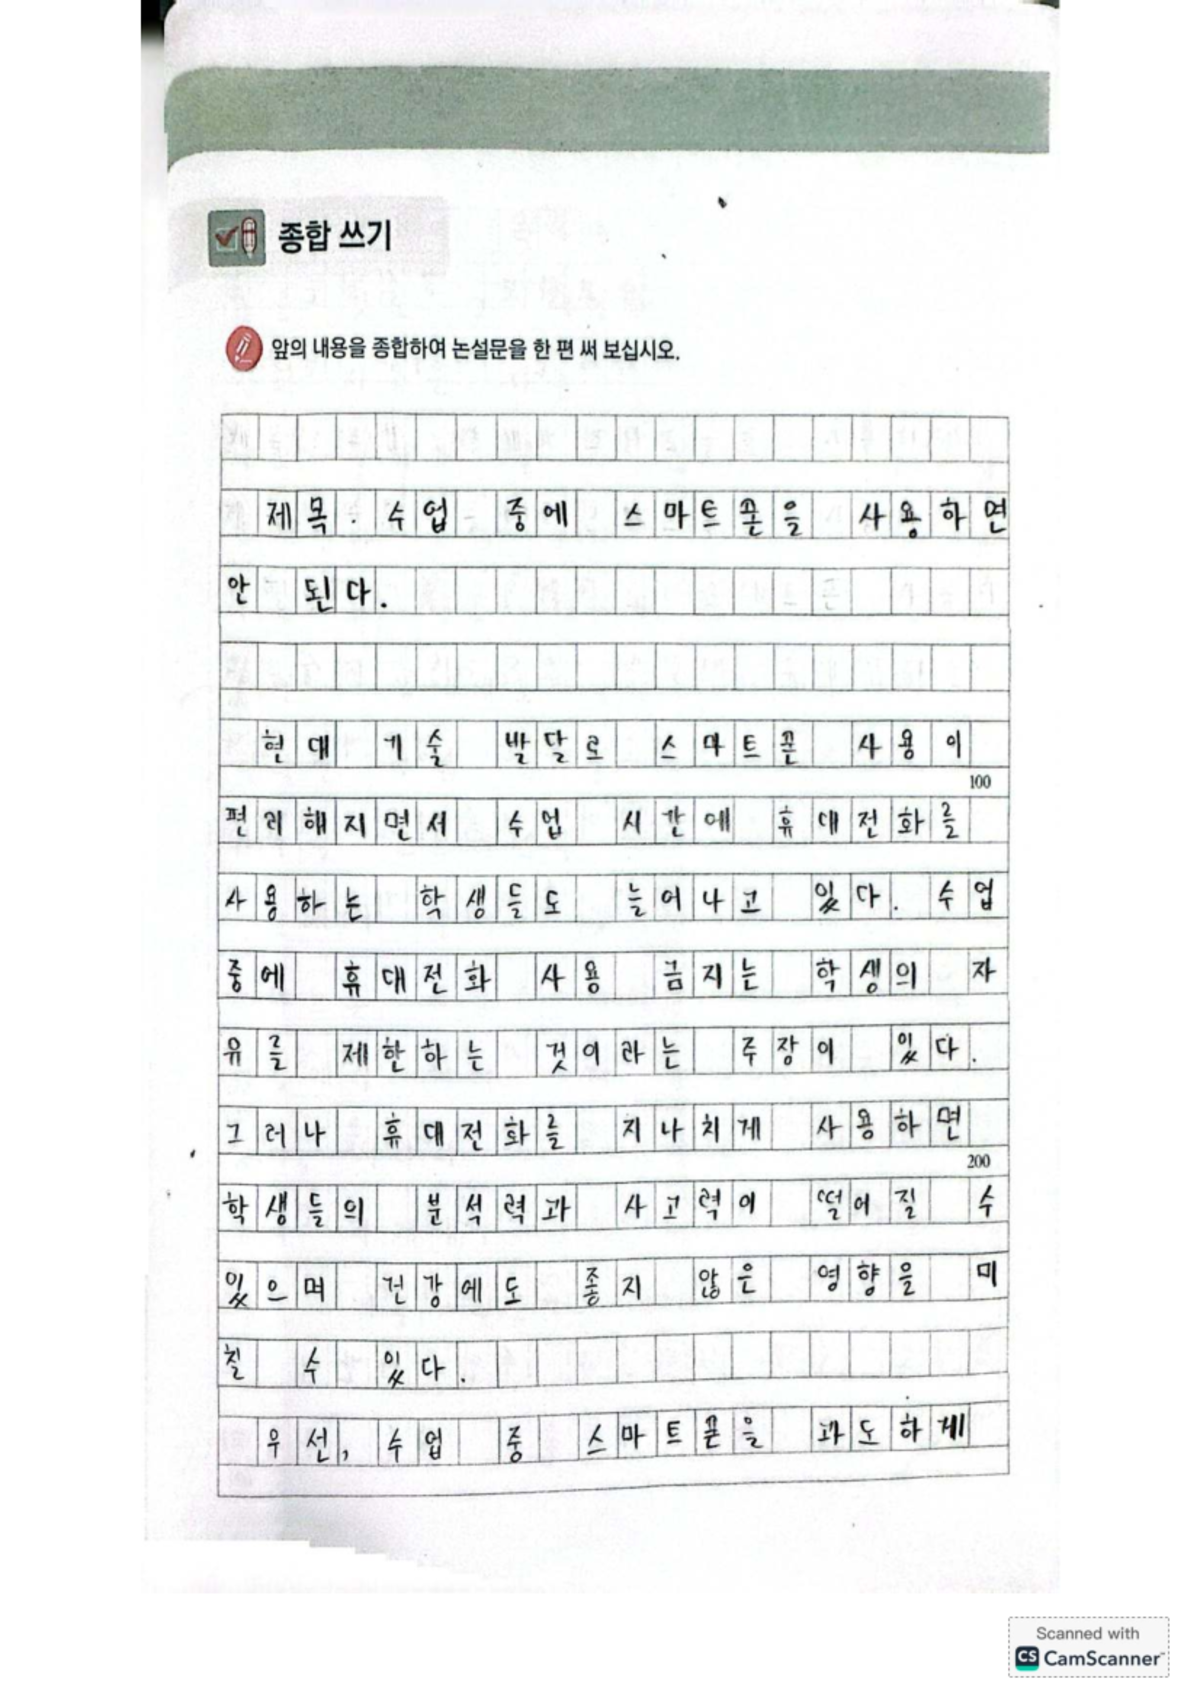 종합 쓰기
앞의 내용을 종합하여 논설문을 한 편 써 보십시오.
제목: 수업 중에 스마트폰을 사용하면
안 된다.
현대 기술 발달로 스마트폰 사용이
100
편리해지면서 수업 시간에 휴대전화를
사용하는 학생들도 늘어나고 있다. 수업
중에 휴대전화 사용 금지는 학생의 자
유를 제한하는 것이라는 주장이 있다.
그러나 휴대전화를 지나치게 사용하면
200
학생들의 분석력과 사고력이 떨어질 수
있으며 건강에도 좋지 않은 영향을 미
칠 수 있다.
우선, 수업 중 스마트폰을 과도하게
Scanned with
CS CamScanner